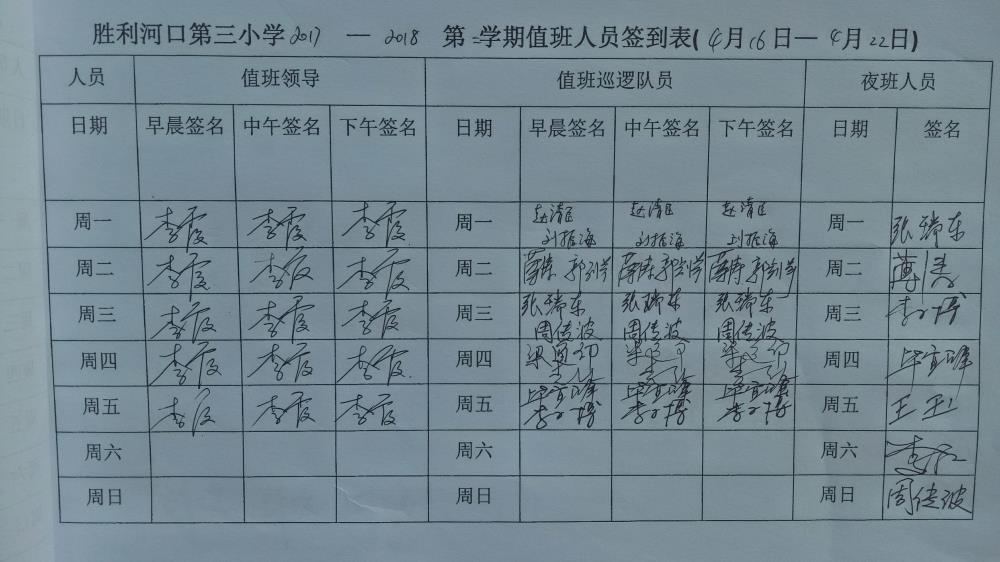 胜利河口第三小学2017 — 2018 第二学期值班人员签到表(4月16日—4月22日)
人员 值班领导 值班巡逻队员 夜班人员
日期 早晨签名 中午签名 下午签名 日期 早晨签名 中午签名 下午签名 日期 签名
周一 李霞 李霞 李霞 周一 赵清臣 赵清臣 赵清臣 周一 张瑞东
刘振海 刘振海 刘振海
周二 李霞 李霞 李霞 周二 周二
周三 李霞 李霞 李霞 周三 张瑞东 张瑞东 张瑞东 周三 李博
周传波 周传波 周传波
周四 李霞 李霞 李霞 周四 周四 毕宜峰
周五 李霞 李霞 李霞 周五 毕宜峰 毕宜峰 毕宜峰 周五
周六 周六 周六
周日 周日 周日 周传波